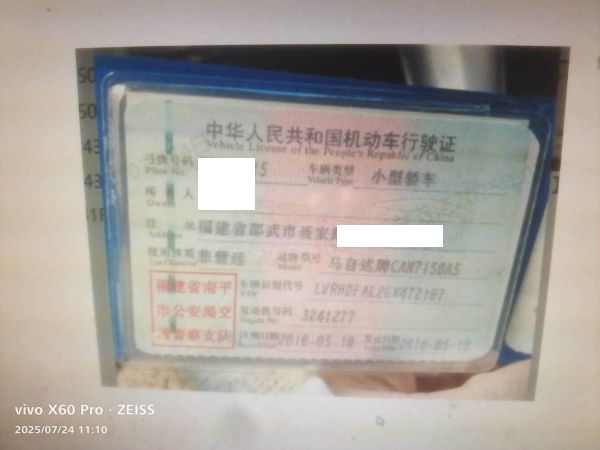 中华人民共和国机动车行驶证
Vehicle License of the People's Republic of China
号牌号码 5 车辆类型 小型轿车
Plate No. Vehicle Type
所 人
Owner
住 址 福建省邵武市聂家
Address
使用性质 非营运 品牌型号 马自达牌CAM7150A5
Use Character Model
福建省南平 车辆识别代号 LVRHDFAL2GN472107
VIN
市公安局交 发动机号码 3241277
Engine No.
通警察支队 注册日期 2016-05-10 发证日期 2016-05-10
vivo X60 Pro · ZEISS
2025/07/24 11:10